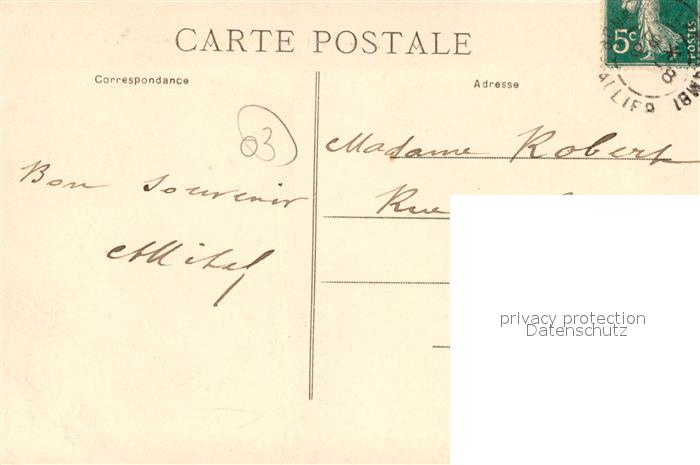 CARTE POSTALE
Correspondance
Adresse
5c
POSTES
ALLIER
03
Madame Robert
Bon souvenir
Rue
privacy protection
Datenschutz